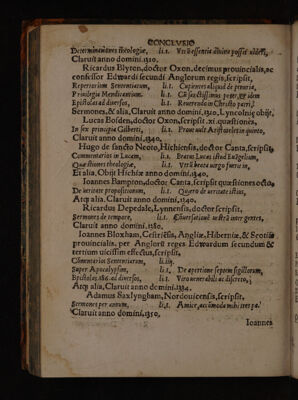 CONCLVSIO
Determinationes theologiæ, li.1. Vtrū essentia diuina possit uideri,
Claruit anno domini.1310.
Ricardus Blyton, doctor Oxon, decimus prouincialis, ac
confessor Edwardi secundi Anglorum regis, scripsit,
Repertorium Sententiarum, li.1. Cupientes aliquid de penuria,
Priuilegia Mendicantium, li.1.
Epistolas ad diuersos, li.1. Reuerendo in Christo patri,
Sermones, & alia, Claruit anno domini.1320, Lyncolniç obijt,
Lucas Bosden, doctor Oxon, scripsit
In sex principia Gilberti, li.1.
Claruit anno domini.1340.
Hugo de sancto Neoto, Hichiensis, doctor Canta, scripsit,
Commentarios in Lucam, li.1. Beatus Lucas istud Euāgelium,
Quæstiones theologiæ, li.1.
Et alia, Obijt Hichiæ anno domini.1340.
Ioannes Bampton, doctor Canta, scripsit quæstiones octo,
De ueritate propositionum, li.1. Quæro de ueritate
Atq; alia. Claruit anno domini.1340.
Ricardus Depedale, Lynnensis, doctor scripsit,
Sermones de tempore, li.1. inter gentes,
Claruit anno domini.
Ioannes Bloxham, Cestriēsis, Angliæ, Hiberniæ, & Scotiæ
prouincialis, per Anglorū reges Edwardum secundum &
tertium uicissim effectus, scripsit,
Cōmentarios Sententiarum, li.iiij.
Super Apocalypsim, li.1. De apertione septem sigillorum,
Epistolas ad diuersos, li.1. Viro uenerabili ac discreto,
Atq; alia, Claruit anno domini.1334.
Adamus Saxlyngham, Nordouicensis, scripsit,
Sermones per annum, li.1.
Claruit anno domini.1350,
Ioannes